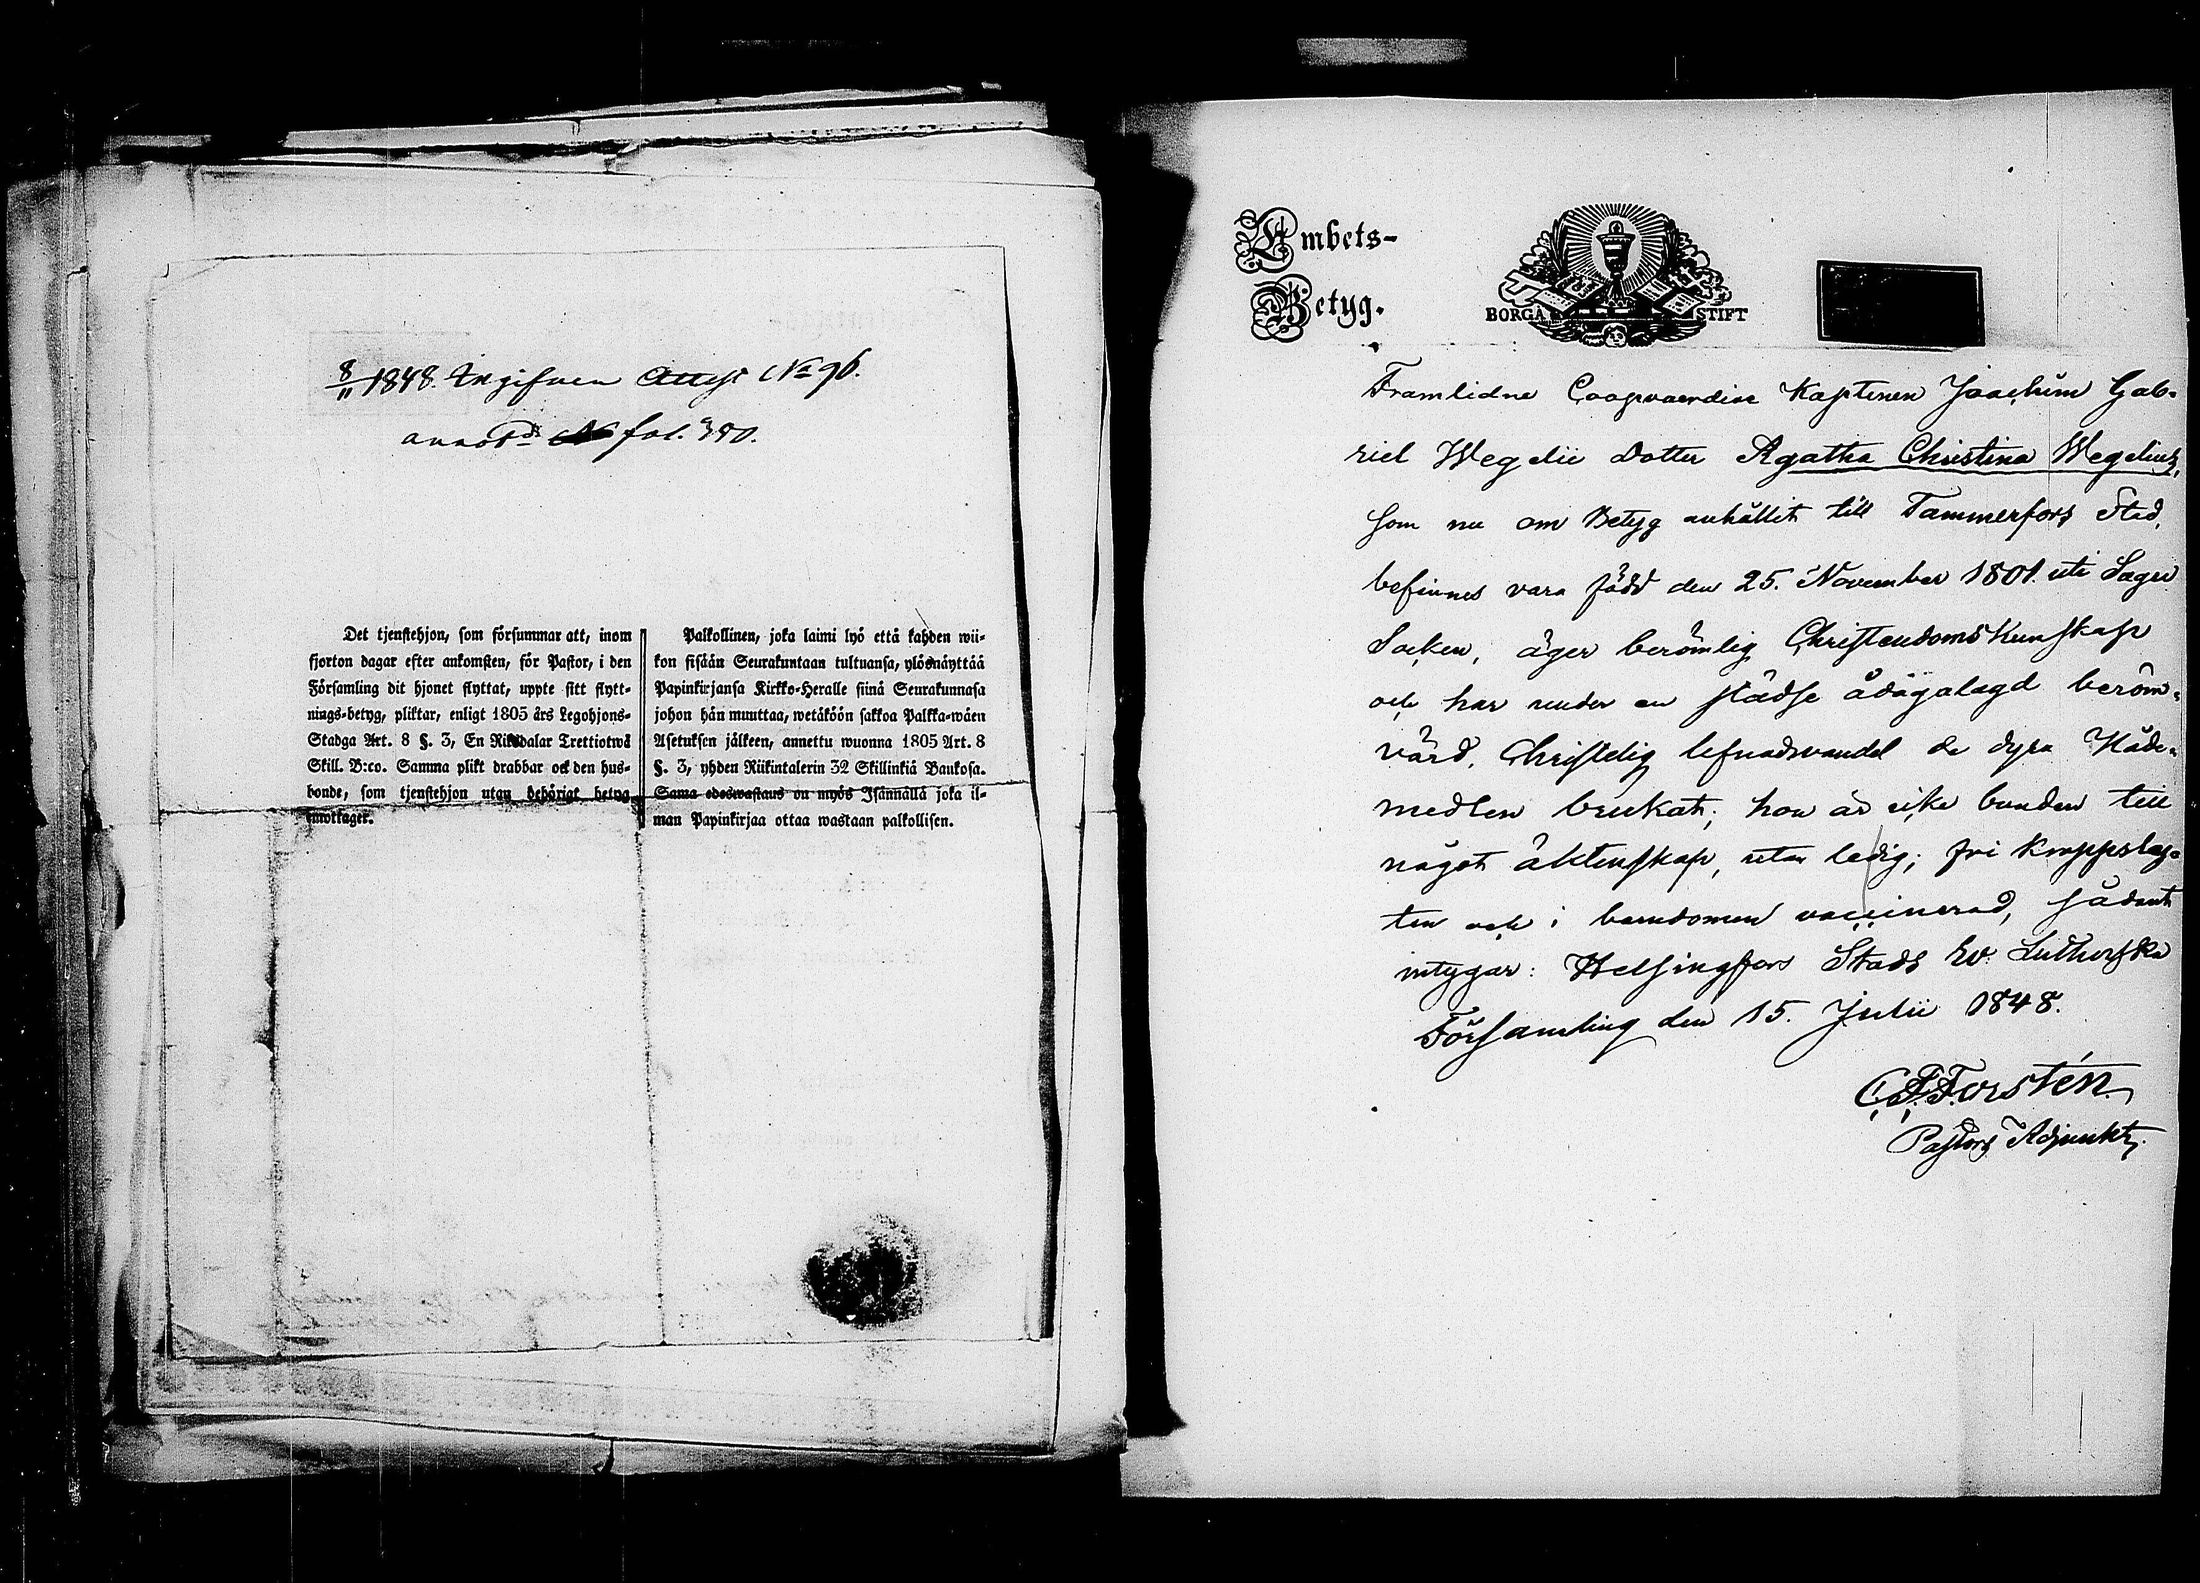 8/11 1848. Ingifven Attest No 96.
annotd fol. 380.
Det tjenstehjon, som försummar att, inom
fjorton dagar efter ankomsten, för Pastor, i den
Församling dit hjonet flyttat, uppte sitt flytt-
nings-betyg, pliktar, enligt 1805 års Legohjons-
Stadga Art. 8 §. 3, En Riksdalar Trettiotwå
Skill. B:co. Samma plikt drabbar ock den hus-
bonde, som tjenstehjon utan behörigt betyg
emottager.
Palkollinen, joka laimi lyö että kahden wii-
kon sisään Seurakuntaan tultuansa, ylösnäyttää
Papinkirjansa Kirkko-Heralle siinä Seurakunnasa
johon hän muuttaa, wetäköön sakkoa Palkka-wäen
Asetuksen jälkeen, annettu wuonna 1805 Art. 8
§. 3, yhden Riikintalerin 32 Skillinkiä Baukosa.
Sama edeswastaus on myös Isännällä joka il-
man Papinkirjaa ottaa wastaan palkollisen.
Embets-
Betyg.
BORGÅ STIFT
Framlidne Coopvaerdiae Kaptenen Joachim Gab-
riel Wegelii Dotter Agatha Christina Wegelius,
som nu om Betyg anhållit till Tammerfors Stad,
befinnes vara född den 25. November 1801. uti Sagu
Socken, äger berömlig Christendoms Kunskap
och har under en städse ådagalagd beröm-
värd, Christelig lefnadsvandel de dyra Nåde-
medlen brukat; hon är icke bunden till
något äktenskap, utan ledig; fri kroppslay-
ten och i barndomen vaccinerad, sådant
intygar: Helsingfors Stads Ev. Lutherska
Församling den 15. Julii 1848.
C. F. Forstén.
Pastors Adjunkt.